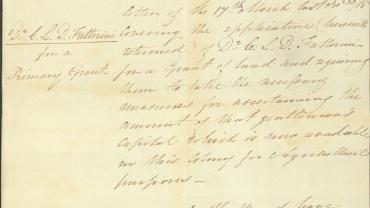 letter of the 17th March last
Dr. C. L. D. Fattorini
for a
Primary Grant
covering the application (herewith
returned) of Dr. C. L. D. Fattorini
for a Grant of Land and requiring
them to take the necessary
measures for ascertaining the
amount of that gentleman's
capital which is now available
in this Colony for Agricultural
purposes —